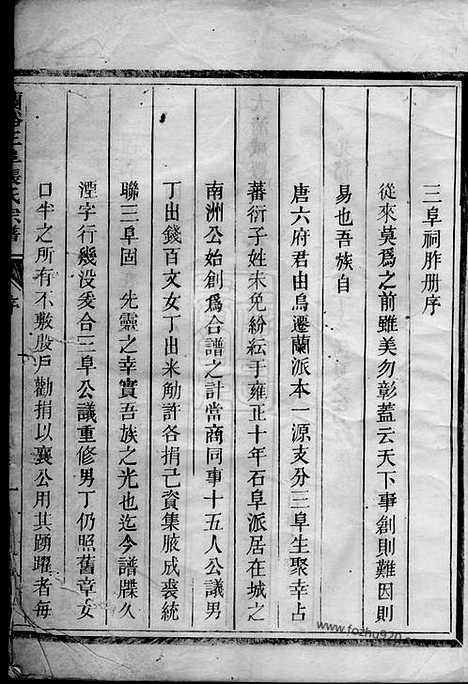 三阜祠胙册序
從來莫爲之前雖美勿彰蓋云天下事創則難因則
易也吾族自
唐六府君由烏遷蘭派本一源支分三阜生聚幸占
蕃衍子姓未免紛紜于雍正十年石阜派居在城之
南洲公始創爲合譜之計當商同事十五人公議男
丁出錢百文女丁出米觔許各捐己資集腋成裘統
聯三阜固 先靈之幸實吾族之光也迄今譜牒久
湮字行幾没爰合三阜公議重修男丁仍照舊章女
口半之所有不敷殷戶勸捐以襄公用其踴躍者每
三阜張氏宗譜
序
www.fozhu920.com